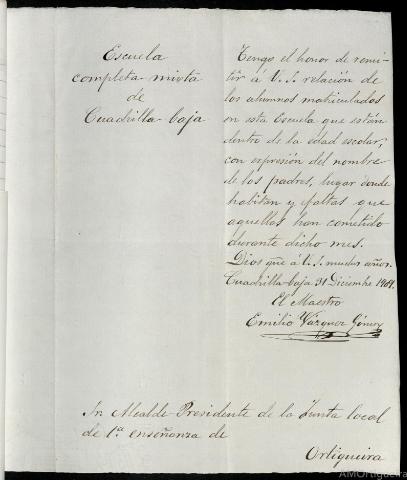 Escuela
completa mixta
de
Cuadrilla-baja
Tengo el honor de remi-
tir á V. S. relación de
los alumnos matriculados
en esta Escuela que están
dentro de la edad escolar,
con expresión del nombre
de los padres, lugar donde
habitan y faltas que
aquellos han cometido
durante dicho mes.
Dios gue á V. S. muchos años.
Cuadrilla-baja 31 Diciembre
El Maestro
Emilio Vázquez Gómez
Sr. Alcalde Presidente de la Junta local
de 1.ª enseñanza de
Ortigueira
AMOrtigueira